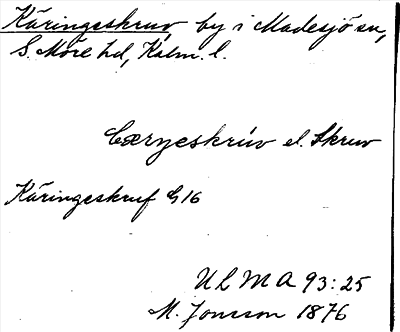 Käringeskruv by i Madesjö sn,
S. Möre hd, Kalm. l.
Cæryeskrúv el. Skruv
Käringeskruf G16
ULMA 93:25
M. Jonsson 1876